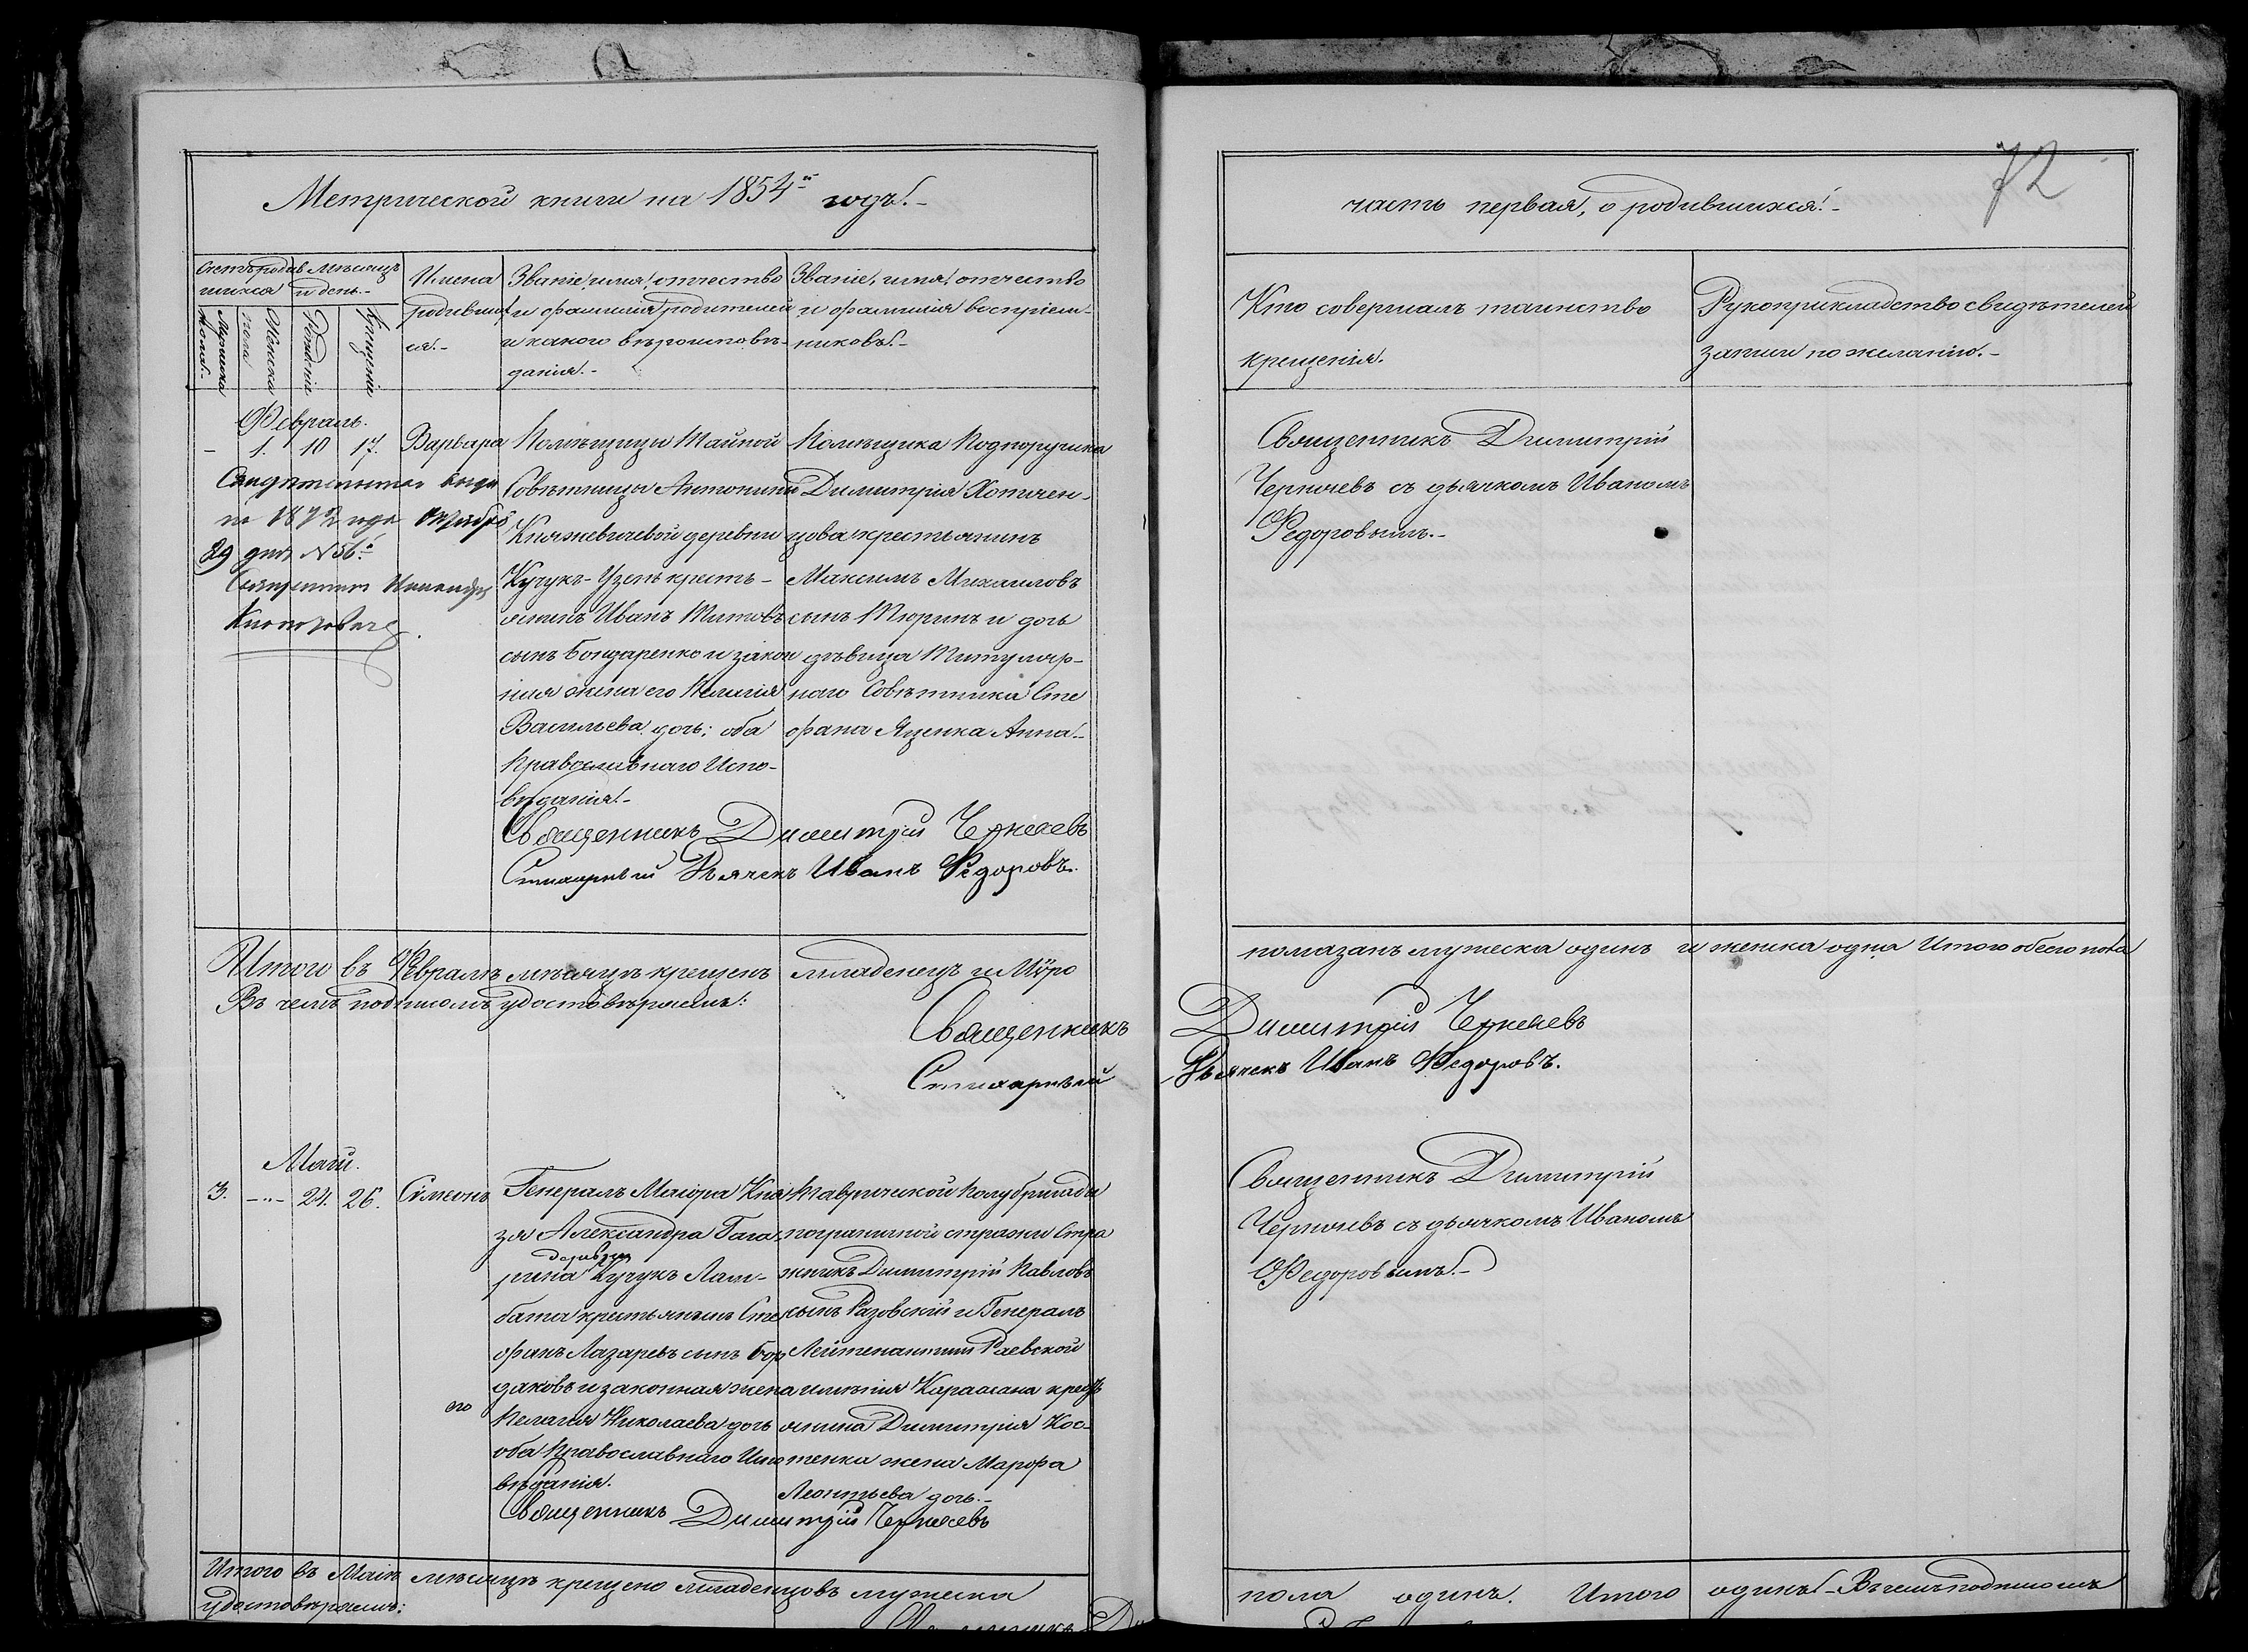 Метрической книги на 1854й годъ.
Счетъ родив
шихся
Мѣсяцъ
и день.
Мужска
пола.
Женска
пола
Рожденія
Крещенія
Имена
родивших
ся.
Званіе, имя, отчество
и фамилія родителей
и какого вѣроисповѣ-
данія.
Званіе, имя, отчество
и фамилія воспріем-
никовъ.
Февраль.
- 1. 10 17. Варвара
Помѣщицы Тайной
Совѣтницы Антонины
Княжевичевой деревни
Кучукъ-Узень кресть-
янинъ Иванъ Титовъ
сынъ Бондаренко и закон
ная жена его Пелагія
Васильева дочь; оба
Православнаго Испо-
вѣданія.
Помѣщика Подпоручика
Димитрія Хотяен-
цова крестьянинъ
Максимъ Михаиловъ
сынъ Тюринъ и дочь
дѣвица Титуляр-
наго Совѣтника Сте
фана Яценка Анна.
Свидѣтельство выда
но 1872 года Октября
29 дня №56й
Священникъ
Священникъ Димитрій Черняевъ
Стихарный Дьячекъ Иванъ Федоровъ.
Итого въ Февралѣ мѣсяцѣ крещенъ младенецъ и Мѵро
Въ чемъ подписомъ удостовѣряемъ:
Священникъ
Стихарный
Май.
3. -"- 24. 26. Симеонъ
Генералъ Маіора Кня
зя Александра Гага
рина деревни Кучукъ Лам-
бата крестьянинъ Сте
фанъ Лазаревъ сынъ Бор
даковъ и законная жена
его Пелагія Николаева дочь
оба Православнаго Испо
вѣданія.
Таврической Полубригады
пограничной стражи Стра
жникъ Димитрій Павловъ
сынъ Разовскій и Генералъ
Лейтенантши Раевской
имѣнія Карасана кресть
янина Димитрія Кос-
тенка жена Марфа
Леонтьева дочь.
Священникъ Димитрій Черняевъ
Итого въ Маіѣ мѣсяцѣ крещено младенцовъ мужеска
удостовѣряемъ:
72
часть первая, о родившихся.
Кто совершалъ таинство
крещенія.
Рукоприкладство свидѣтелей
записи по желанію.
Священникъ Димитрій
Черняевъ съ дьячкомъ Иваномъ
Федоровымъ.
помазанъ мужеска одинъ и женска одна Итого обоего пола
Димитрій Черняевъ
Дьячекъ Иванъ Федоровъ.
Священникъ Димитрій
Черняевъ съ дьячкомъ Иваномъ
Федоровымъ.
пола одинъ. Итого одинъ. Въ чемъ подписомъ